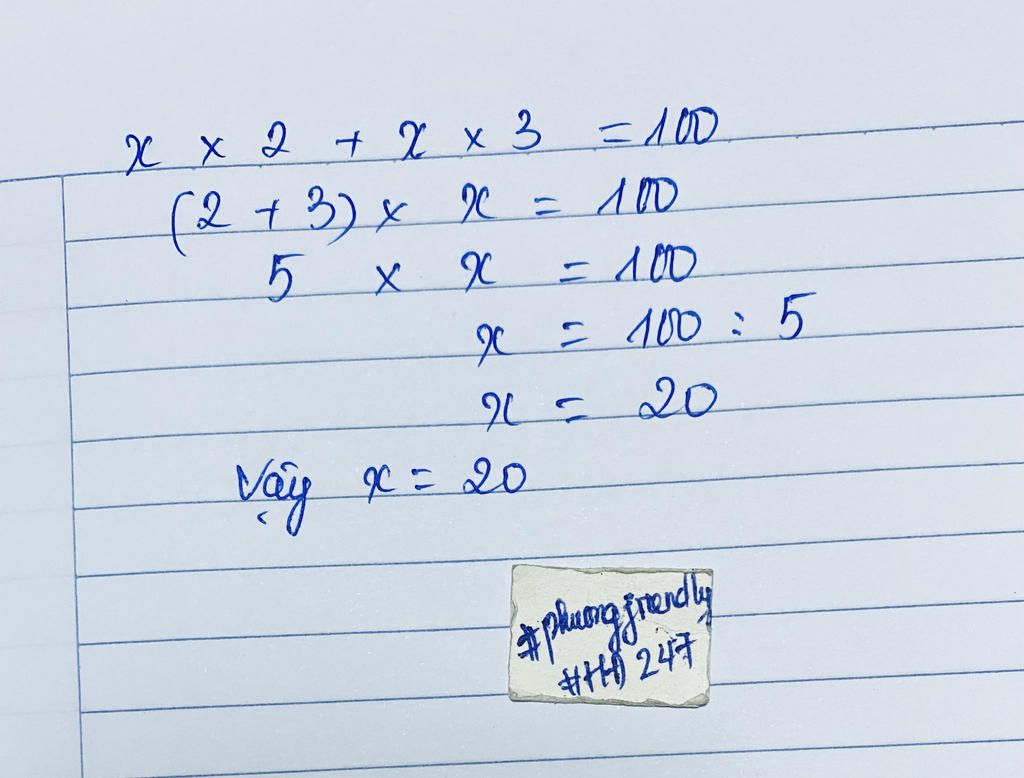 x × 2 + x × 3 = 100
(2 + 3) × x = 100
5 × x = 100
x = 100 : 5
x = 20
Vậy x = 20
#phuongfriendly
#HĐ 247